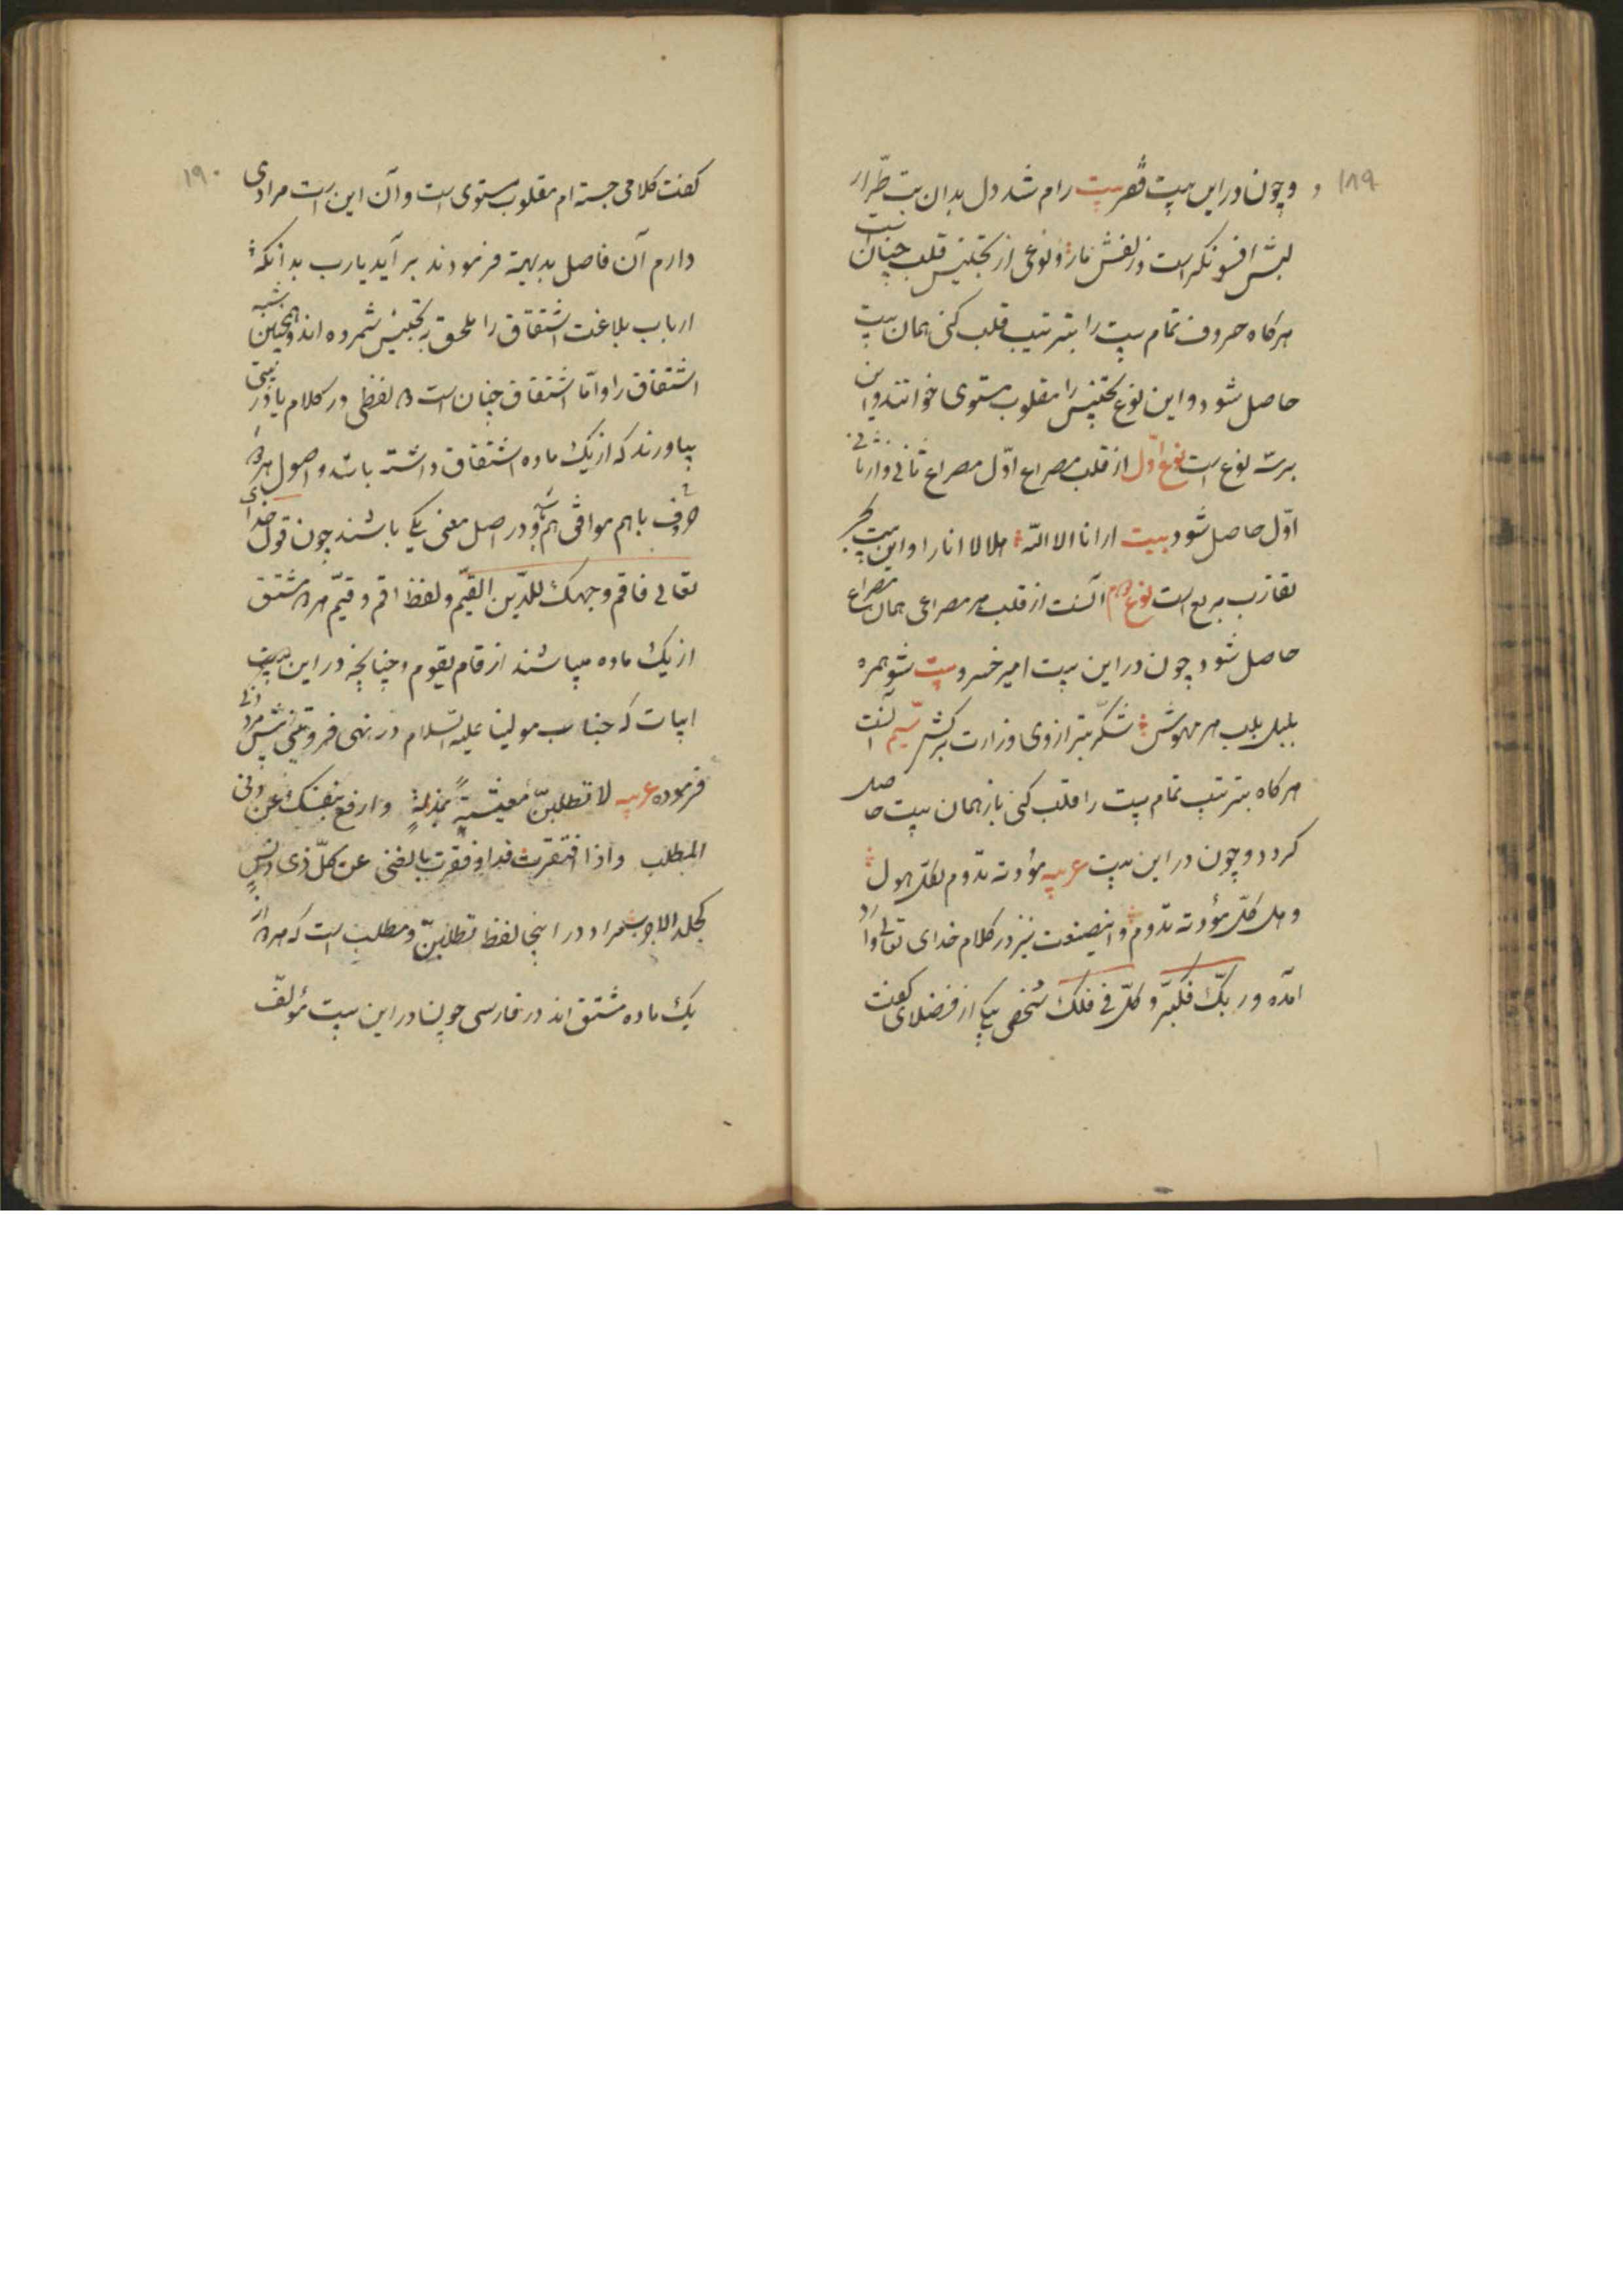 ۱۸۹
و چون در این بیت فقیر بیت رام شد دل بدان بت طرّار
لبش افسونگر است و زلفش مار و نوعی از تجنیس قلب چنان است
هرگاه حروف تمام بیت را بترتیب قلب کنی همان بیت
حاصل شود و این نوع تجنیس را مقلوب مستوی خوانند و این
بر سه نوع است نوع اوّل از قلب مصراع اوّل مصراع ثانی و از ثانی
اوّل حاصل شود بیت ارانا الا اللّه هلالا انارا و این بیت بحر
تقارب مربع است نوع دوم آنست از قلب هر مصراعی همان مصراع
حاصل شود چون در این بیت امیر خسرو بیت شو همره
بلبل بلب هر مهوش شکّر بترازوی وزارت برکش سیّم آنست
هرگاه بترتیب تمام بیت را قلب کنی باز همان بیت حاصل
گردد و چون در این بیت عربیه مودته تدوم لکلّ هول
و هل کلّ مودته تدوم و اینصنعت نیز در کلام خدای تعالی وارد
آمده و ربّک فکبّر و کلّ فی فلک شخصی بیکی از فضلای گفت
۱۹۰
گفت کلامی جسته ام مقلوب مستوی است و آن این است مرادی
دارم آن فاضل بدیهة فرمودند بر آید یارب بدانکه
ارباب بلاغت اشتقاق را ملحق بتجنیس شمرده اند و همچنین شبه
اشتقاق را و امّا اشتقاق چنان است لفظی در کلام یا در بیتی
بیاورند که از یک ماده اشتقاق داشته باشد و اصول
حروف باهم موافق هم و در اصل معنی یکی باشند چون قول خدای
تعالی فاقم وجهک للدّین القیّم و لفظ اقم و قیّم مشتق
از یک ماده میباشند از قام یقوم و چنانچه در این
ابیات که جناب مولینا علیه السّلام در نهی فروتنی پیش مرد دانی
فرموده عربیه لا تطلبنّ معیشةً بمذلةٍ وارفع بنفسک عن دنی
المطلب و اذا افتقرت فداو فقرت بالغنی عن کلّ ذی دنس
کجلد الاجرب مراد در اینجا لفظ تطلبنّ و مطلب است که از
یک ماده مشتق اند در فارسی چون در این بیت مؤلف